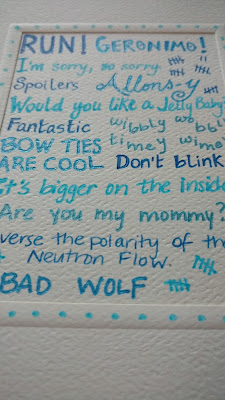 RUN! GERONIMO!
I'm sorry, so sorry
Spoilers Allons-y
Would you like a Jelly Baby
Fantastic wibbly wobbly
BOW TIES timey wimey
ARE COOL Don't blink
It's bigger on the inside
Are you my mommy?
verse the polarity of the
Neutron Flow.
BAD WOLF